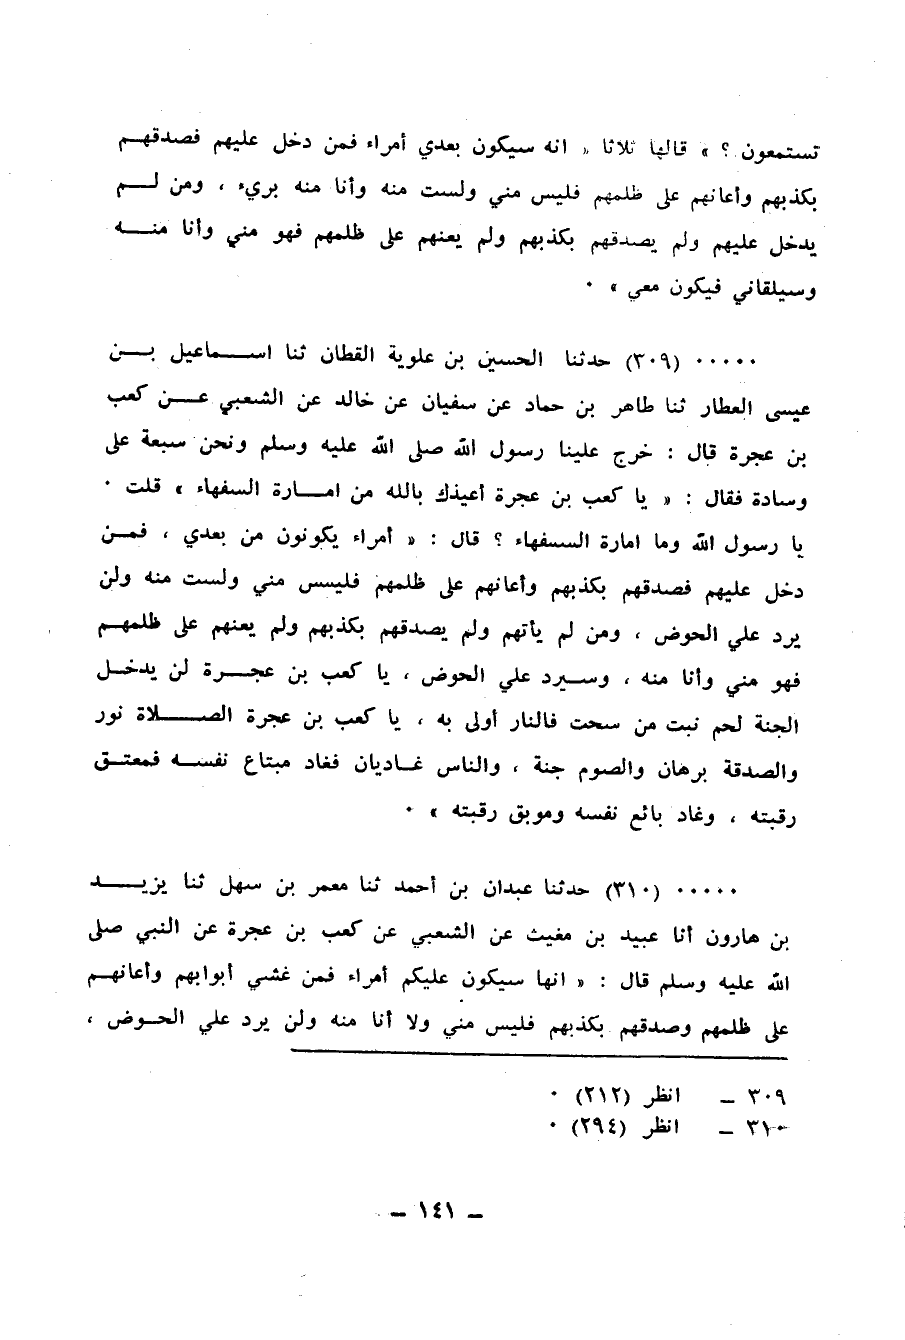 تستمعون ؟ » قالها ثلاثا « انه سيكون بعدي أمراء فمن دخل عليهم فصدقهم
بكذبهم وأعانهم على ظلمهم فليس مني ولست منه وأنا منه بريء ، ومن لم
يدخل عليهم ولم يصدقهم بكذبهم ولم يعنهم على ظلمهم فهو مني وأنا منه
وسيلقاني فيكون معي » ٠
٠٠٠٠٠ (٣٠٩) حدثنا الحسين بن علوية القطان ثنا اسماعيل بن
عيسى العطار ثنا طاهر بن حماد عن سفيان عن خالد عن الشعبي عن كعب
بن عجرة قال : خرج علينا رسول الله صلى الله عليه وسلم ونحن سبعة على
وسادة فقال : « يا كعب بن عجرة أعيذك بالله من امارة السفهاء » قلت ٠
يا رسول الله وما امارة السفهاء ؟ قال : « أمراء يكونون من بعدي ، فمن
دخل عليهم فصدقهم بكذبهم وأعانهم على ظلمهم فليس مني ولست منه ولن
يرد علي الحوض ، ومن لم يأتهم ولم يصدقهم بكذبهم ولم يعنهم على ظلمهم
فهو مني وأنا منه ، وسيرد علي الحوض ، يا كعب بن عجرة لن يدخل
الجنة لحم نبت من سحت فالنار أولى به ، يا كعب بن عجرة الصلاة نور
والصدقة برهان والصوم جنة ، والناس غاديان فغاد مبتاع نفسه فمعتق
رقبته ، وغاد بائع نفسه وموبق رقبته » ٠
٠٠٠٠٠ (٣١٠) حدثنا عبدان بن أحمد ثنا معمر بن سهل ثنا يزيد
بن هارون أنا عبيد بن مغيث عن الشعبي عن كعب بن عجرة عن النبي صلى
الله عليه وسلم قال : « انها سيكون عليكم أمراء فمن غشي أبوابهم وأعانهم
على ظلمهم وصدقهم بكذبهم فليس مني ولا أنا منه ولن يرد علي الحوض ،
٣٠٩ ـ انظر (٢١٢) ٠
٣١٠ ـ انظر (٢٩٤) ٠
ـ ١٤١ ـ